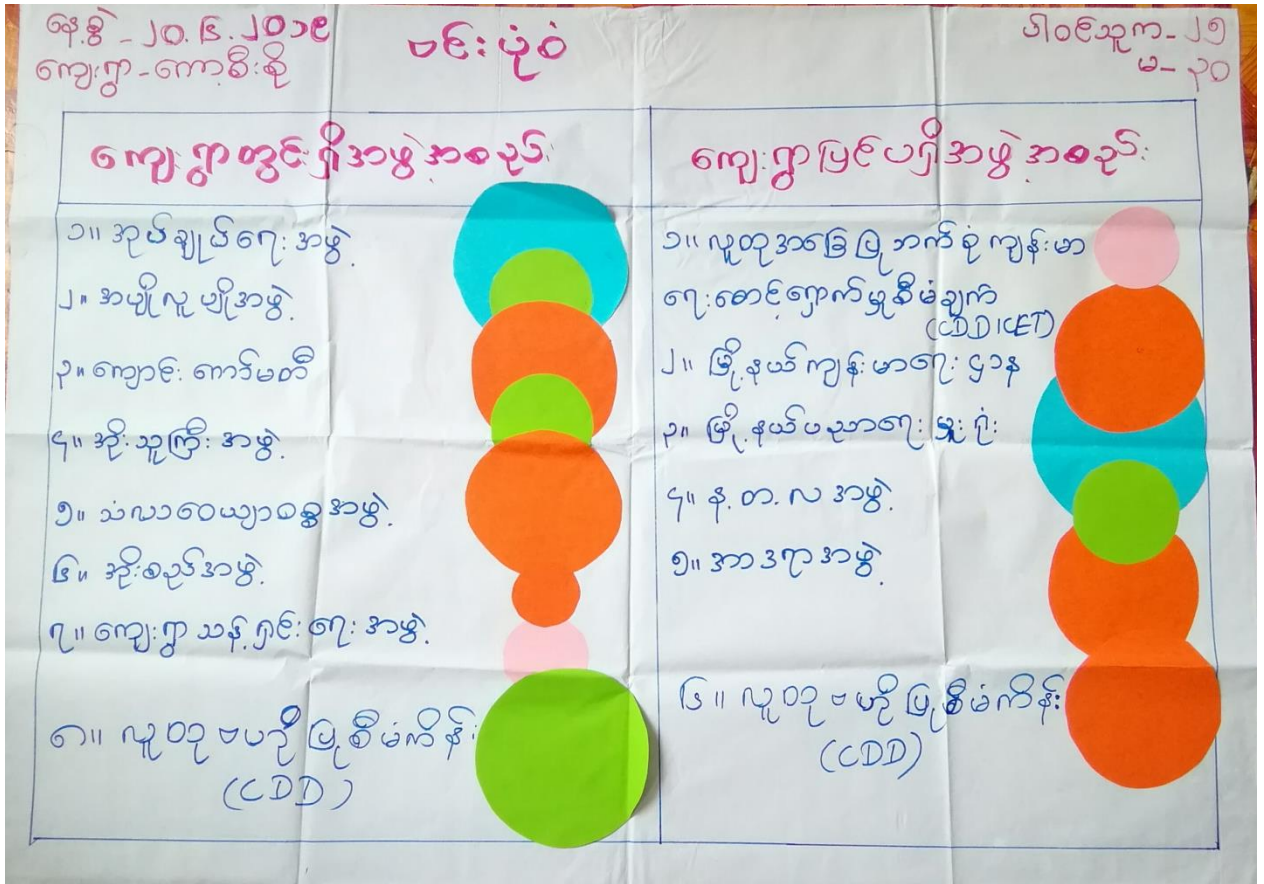 နေ့စွဲ - ၂၀.၆.၂၀၁၉
ကျေးရွာ - ကော့စီးစို
ဗင်းပုံစံ
ပါဝင်သူ က - ၂၅
မ - ၃၀
ကျေးရွာတွင်းရှိအဖွဲ့အစည်း
၁။ အုပ်ချုပ်ရေးအဖွဲ့
၂။ အပျိုလူပျိုအဖွဲ့
၃။ ကျောင်းကော်မတီ
၄။ အိုးသူကြီးအဖွဲ့
၅။ သံဃာဝေယျာဝစ္စအဖွဲ့
၆။ အိုးစည်အဖွဲ့
၇။ ကျေးရွာသန့်ရှင်းရေးအဖွဲ့
၈။ လူထုဗဟိုပြုစီမံကိန်း
(CDD)
ကျေးရွာပြင်ပရှိအဖွဲ့အစည်း
၁။ လူထုအခြေပြုဘက်စုံကျန်းမာ
ရေးစောင့်ရှောက်မှုစီမံချက်
(CDDICET)
၂။ မြို့နယ်ကျန်းမာရေးဌာန
၃။ မြို့နယ်ပညာရေးမှူးရုံး
၄။ န.တ.လ အဖွဲ့
၅။ အာဒရာအဖွဲ့
၆။ လူထုဗဟိုပြုစီမံကိန်း
(CDD)